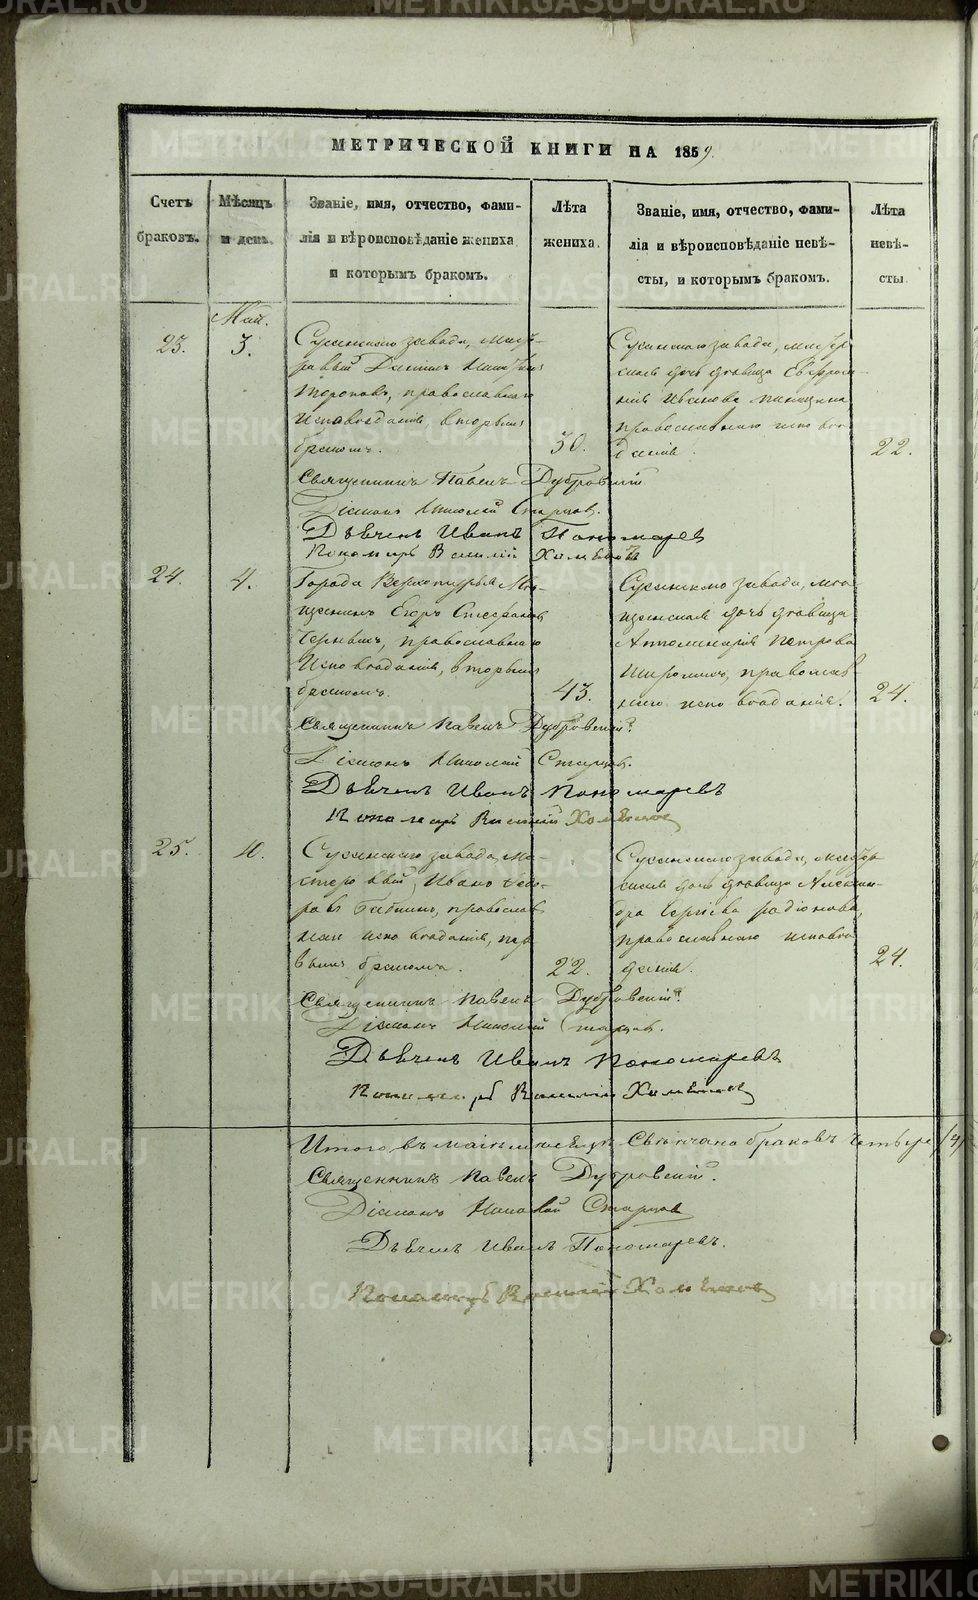 МЕТРИЧЕСКОЙ КНИГИ НА 1859.
Счетъ браковъ.
Мѣсяцъ и день.
Званіе, имя, отчество, фами-
лія и вѣроисповѣданіе жениха
и которымъ бракомъ.
Лѣта
жениха.
Званіе, имя, отчество, фами-
лія и вѣроисповѣданіе невѣ-
сты, и которымъ бракомъ.
Лѣта
невѣ-
сты.
Май.
23.
3.
Сусанскаго завода, масте-
ровый
православнаго
исповѣданія, вторымъ
бракомъ.
30.
Сусанскаго завода, мастер-
ская дочь дѣвица Евфроси-
нія Иванова
православнаго исповѣ-
данія.
22.
Священникъ Павелъ Дубровскій
Діаконъ Николай Старцов.
Дьячекъ Иванъ Пономарев
Пономарь Василій
24.
4.
Города Верхотурья Мѣ-
щанинъ Егоръ Стефановъ
православнаго
Исповѣданія, вторымъ
бракомъ.
43.
Сусанскаго завода,
дочь дѣвица
Аполинарія Петрова
православ-
наго исповѣданія.
24.
Священникъ Павелъ Дубровскій.
Діаконъ Николай Старцов.
Дьячекъ Иванъ Пономаревъ
Пономарь Василій
25.
10.
Сусанскаго завода, Ма-
стеровый, Иванъ Федо-
ровъ православ-
наго исповѣданія, пер-
вымъ бракомъ.
22.
Сусанскаго завода, мастер-
ская дочь дѣвица Алексан-
дра Сергіева Радіонова,
православнаго исповѣ-
данія.
24.
Священникъ Павелъ Дубровскій.
Діаконъ Николай Старцов.
Дьячекъ Иванъ Пономаревъ
Пономарь Василій
Итого въ маѣ мѣсяцѣ Свѣнчано браковъ четыре (4)
Священникъ Павелъ Дубровскій.
Діаконъ Николай Старцов
Дьячекъ Иванъ Пономаревъ.
Пономарь Василій
METRIKI.GASO-URAL.RU